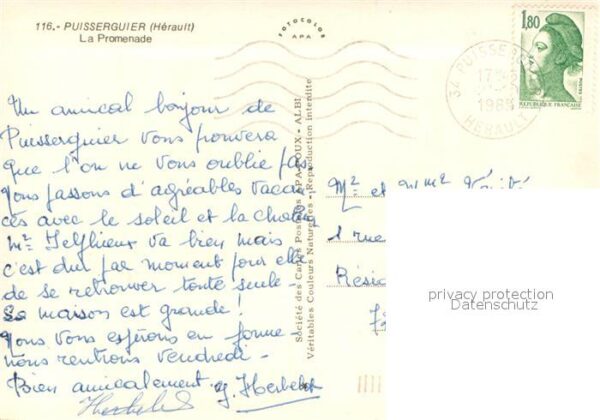 116.- PUISSERGUIER (Hérault)
La Promenade
FOTOCOLOR
APA
1,80
REPUBLIQUE FRANÇAISE
34 PUISSER
17
198
HERAULT
Un amical bonjour de
Puisserguier vous prouvera
que l'on ne vous oublie pas.
Nous passons d'agréables vacan
ces avec le soleil et la chaleur
va bien mais
c'est dur par moment pour elle
de se retrouver toute seule -
Sa maison est grande !
Nous vous espérons en forme
nous rentrons vendredi -
Bien amicalement Herbelot
Société des Cartes Postales APA-POUX - ALBI
Véritables Couleurs Naturelles - Reproduction interdite
Mr et Mme
1 rue
Résid
privacy protection
Datenschutz